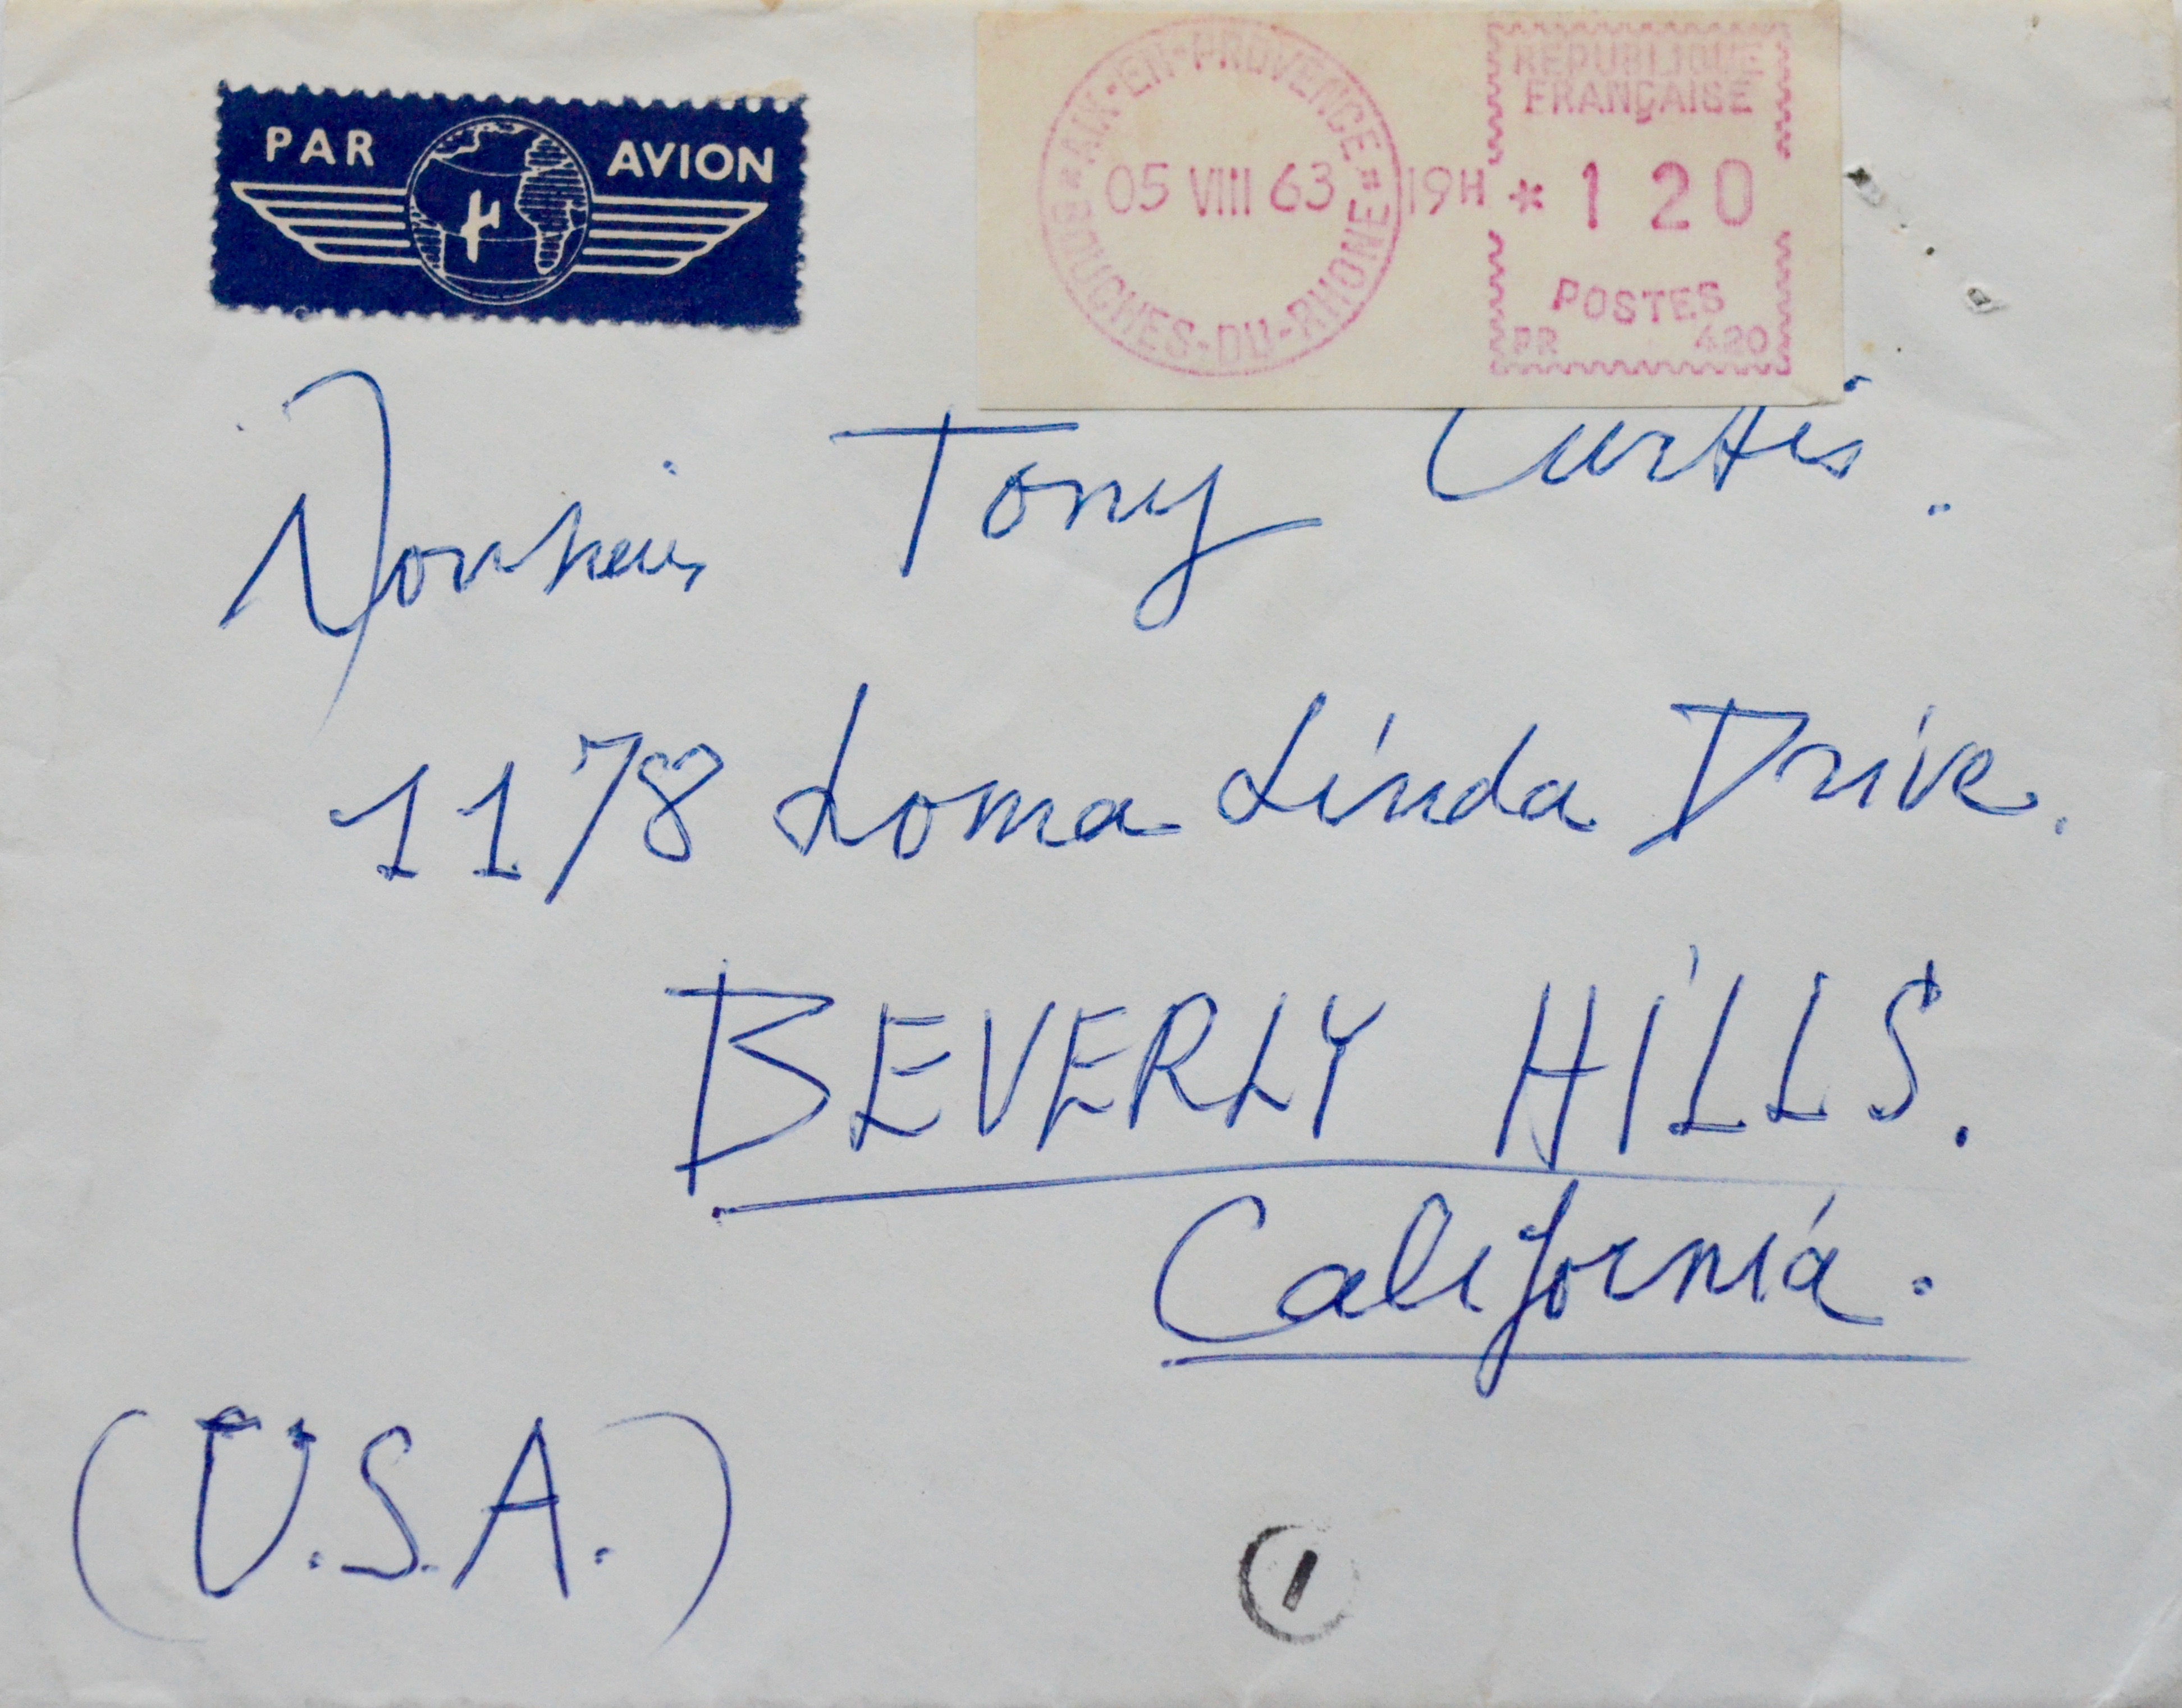 PAR AVION
AIX-EN-PROVENCE
05 VIII 63 19H
BOUCHES-DU-RHONE
REPUBLIQUE
FRANÇAISE
* 1 20
POSTES
PR 420
Monsieur Tony Curtis.
1178 Loma Linda Drive.
BEVERLY HILLS.
California.
(U.S.A.)
1